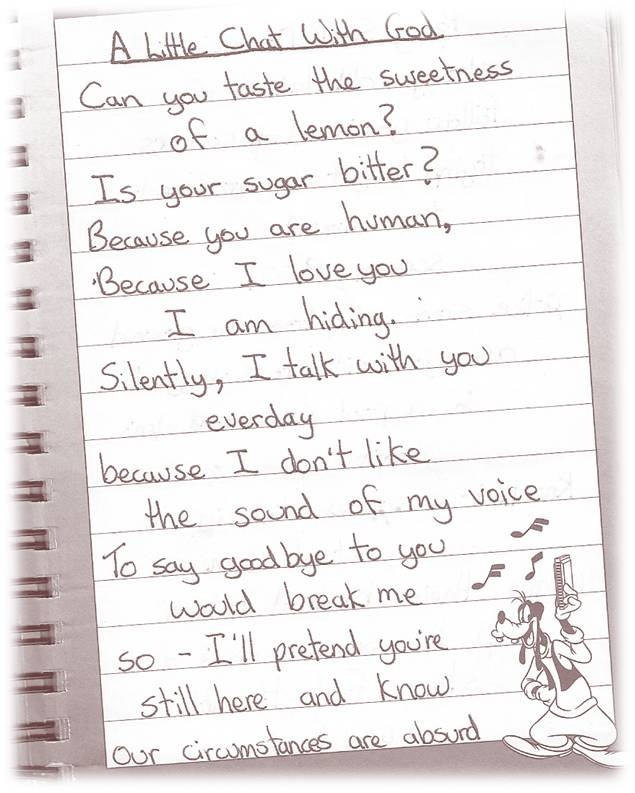 A Little Chat With God
Can you taste the sweetness
of a lemon?
Is your sugar bitter?
Because you are human,
Because I love you
I am hiding.
Silently, I talk with you
everday
because I don't like
the sound of my voice
To say goodbye to you
would break me
so - I'll pretend you're
still here and know
Our circumstances are absurd